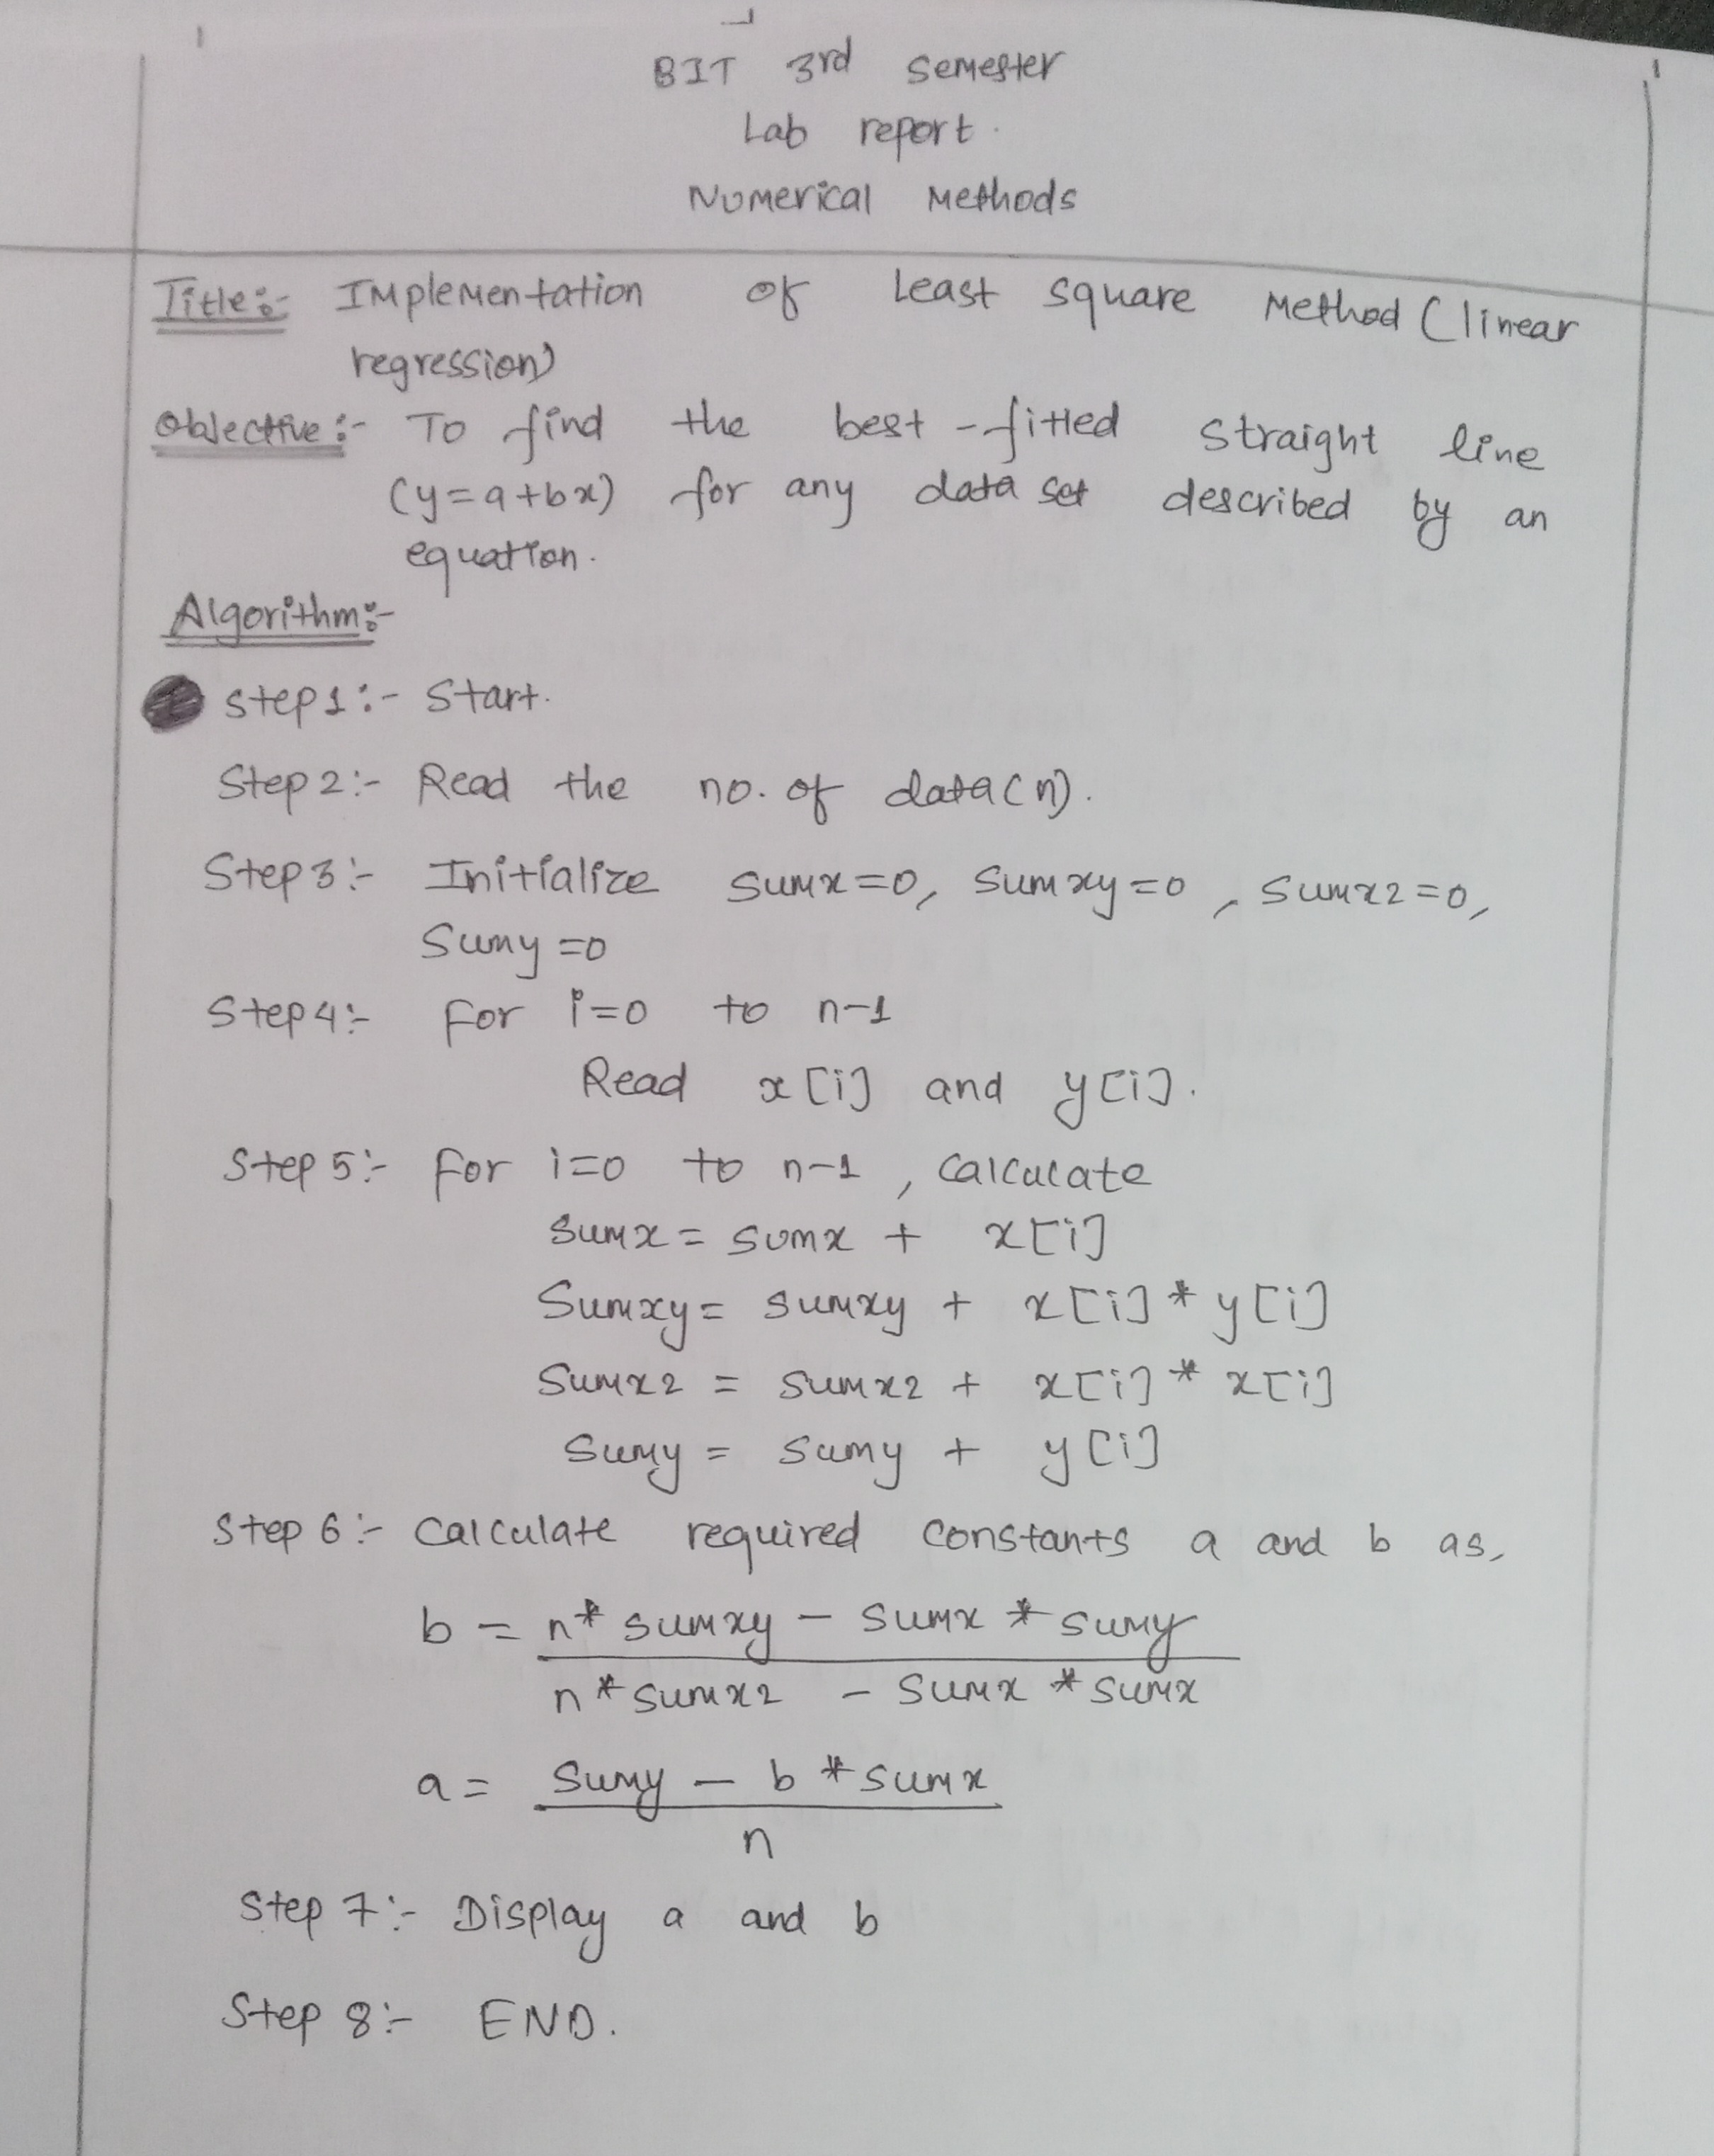 BIT 3rd Semester
Lab report.
Numerical Methods
Title:- Implementation of Least square Method (linear
regression)
Objective:- To find the best-fitted straight line
(y=a+bx) for any data set described by an
equation.
Algorithm:-
Step1:- Start.
Step 2:- Read the no. of data(n).
Step 3:- Initialize sumx=0, sumxy=0, sumx2=0,
Sumy=0
Step 4:- For i=0 to n-1
Read x[i] and y[i].
Step 5:- For i=0 to n-1, calculate
sumx = sumx + x[i]
Sumxy = sumxy + x[i] * y[i]
Sumx2 = sumx2 + x[i] * x[i]
Sumy = sumy + y[i]
Step 6:- Calculate required constants a and b as,
b = n* sumxy - sumx * sumy
n * sumx2 - sumx * sumx
a = sumy - b * sumx
n
Step 7:- Display a and b
Step 8:- END.